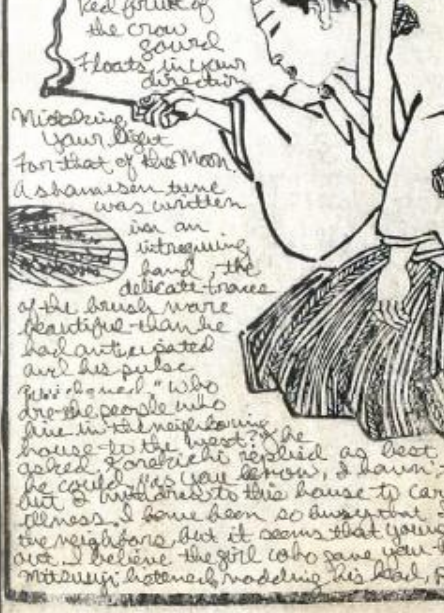 Red fruit of
the crow
gourd
Floats in your
direction
Mistaking
Your light
For that of the Moon.
A shamisen tune
was written
in an
intreguing
hand, the
delicate traces
of the brush more
beautiful than he
had anticipated
and his pulse
quickened. "Who
are the people who
live in the neighboring
house to the west?" he
asked. Korekichi replied as best
he could, "as you know, I haven't
but I
address to this house to
illness. I have been so busy that
the neighbors, but it seems that
out. I believe the girl who gave you
Mitsuuji listened, nodding his head,